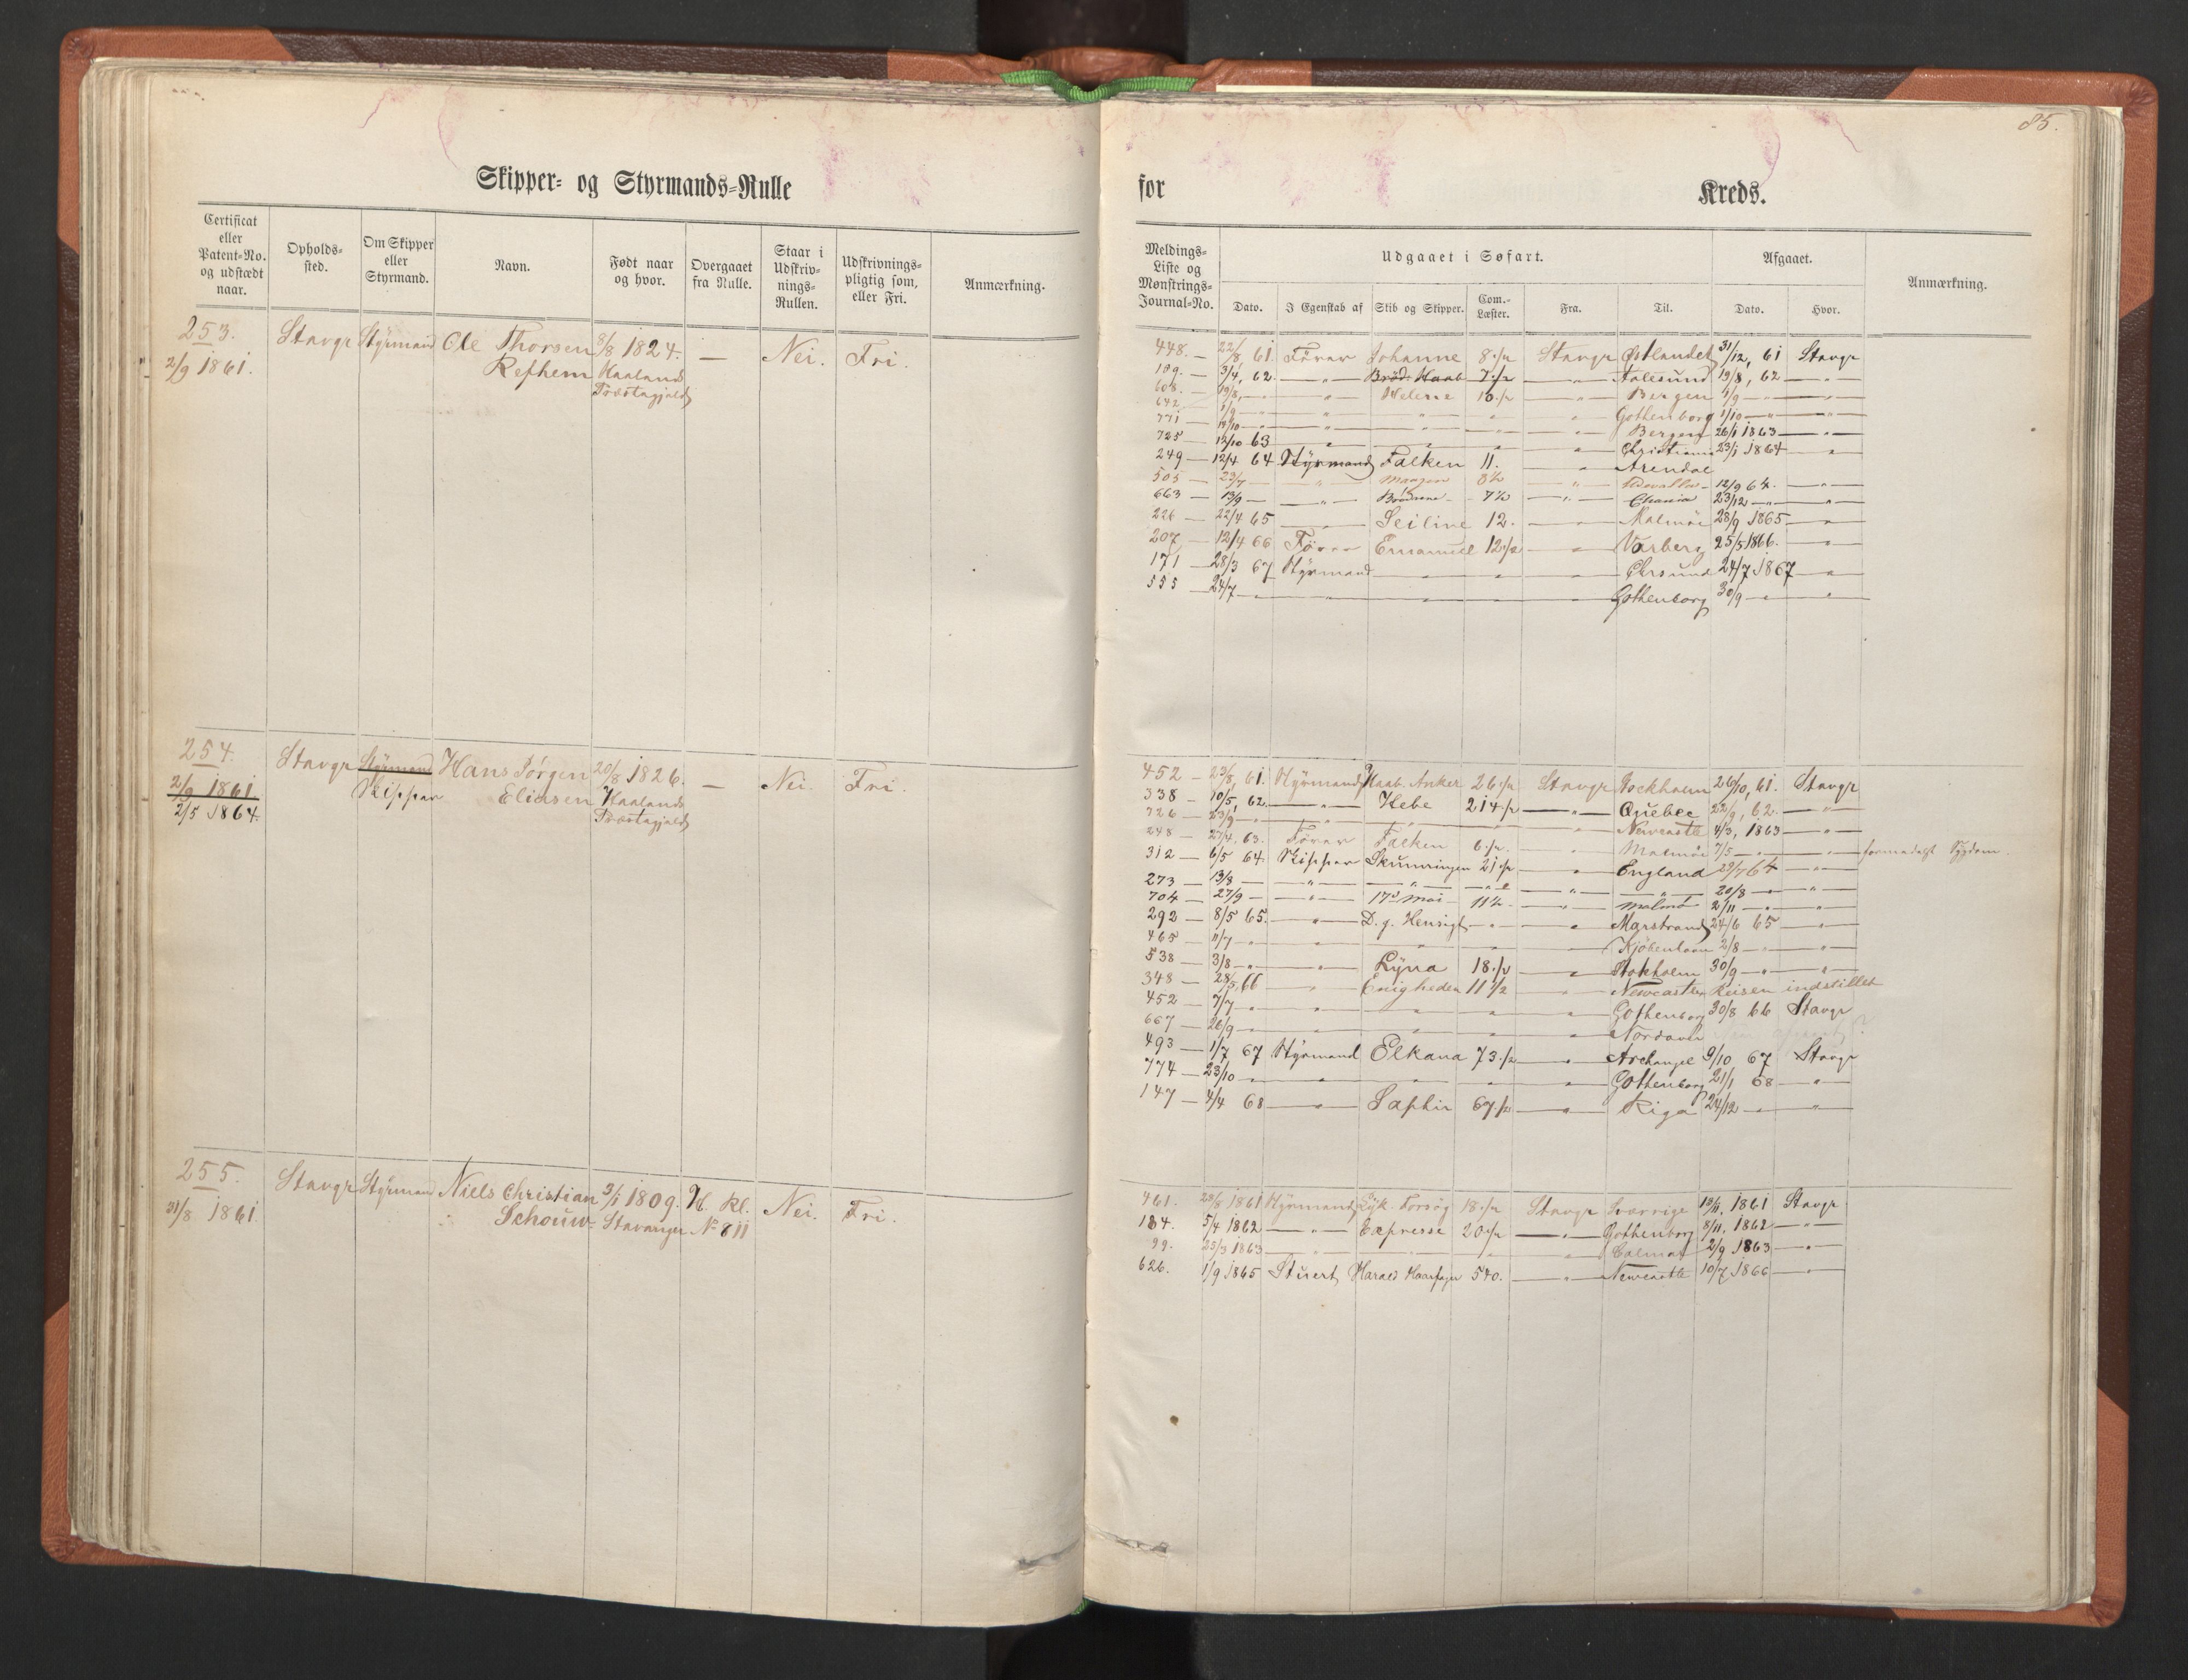 85.
Skipper- og Styrmands-Rulle
for Kreds.
Certificat eller Patent-No. og udstædt naar.
Opholds-sted.
Om Skipper eller Styrmand.
Navn.
Født naar og hvor.
Overgaaet fra Rulle.
Staar i Udskriv-nings-Rullen.
Udskrivnings-pligtig som, eller Fri.
Anmærkning.
Meldings-Liste og Mønstrings-Journal-No.
Udgaaet i Søfart.
Afgaaet.
Dato. I Egenskab af Skib og Skipper. Com.-Læster. Fra. Til. Dato. Hvor.
Anmærkning.
253. Stavgr Styrmand Ole Thorsen 8/8 1824. — Nei. Fri.
2/9 1861. Refhem Haalands
Præstegjeld
448. — 22/8 61 Fører Johanne 8 1/2 Stavgr Østlandet 31/12, 61 Stavgr
189. — 3/4, 62 — " — Brød. Haab 7 1/2 — " — Aalesund 19/8, 62 — " —
608. — 19/8, — " Helene 10 1/2 — " — Bergen 1/9 — " —
642 — 1/9 — " — " — " — " — Gothenborg 1/10 — " —
771 — 14/10 — " — " — " — " — Bergen 26/1 1863 — " —
725 — 12/10 63 — " — " — " — " — Christiania 23/1 1864 — " —
249 — 12/4 64 Styrmand Falken 11. — " — Arendal
505 — 23/7 — " — 8 1/2 — " — 12/9 64. — " —
663 — 13/9 — " — Brødrene — 7 1/2 — " — Chania 23/12 — " —
226 — 22/4 65 — " — Seiline 12. — " — Malmøe 28/9 1865 — " —
207 — 12/4 66 Fører Emanuel 12 1/2 — " — Varberg 25/5 1866. — " —
171 — 28/3 67 Styrmand — " — " — " — Chrsund 24/7 1867 — " —
555 — 24/7 — " — " — " — " — Gothenborg 30/9 — " —
254. Stavgr Styrmand Hans Jørgen 20/8 1826. — Nei. Fri.
2/9 1861 Skipper Eliasen Haalands
2/5 1864. Præstegjeld
452 — 23/8, 61. Styrmand Haab. Anker 26 1/2 Stavgr Stockholm 26/10, 61. Stavgr
338 — 10/5, 62. — " — Hebe 214 1/2 — " — Quebec 22/9, 62. — " —
726 — 23/9 — " — " — " — " — Newcastle 4/3, 1863 — " —
248 — 27/4, 63. Fører Falken 6 1/2 — " — Malmøe 7/5 — " — formedelst Sygdom
312 — 6/5 64. Skipper Skumringen 21 1/2 — " — England 29/7 64 — " —
273 — 13/8 — " — " — " — " — " — 20/8 — " —
704 — 27/9 — " — 17d Mai — 11 1/2 — " — Malmø 2/11 — " —
292 — 8/5 65. — " — D. g. Hensigt — " — " — Marstrand 24/6 65 — " —
465 — 11/7 — " — " — " — " — Kjøbenhavn 2/8 — " —
538 — 3/8 — " — " — Lyna 18 1/2 — " — Stokholm 30/9 — " —
348 — 28/5, 66 — " — Enigheden 11 1/2 — " — Newcastle Reisen indstillet
452 — 7/7 — " — " — " — " — Gothenborg 30/8 66 Stavgr
667 — 26/9 — " — " — " — " — Nordover
493 — 1/7 67 Styrmand Elkana 73 1/2 — " — Archangel 9/10 67 Stavgr
774 — 23/10 — " — " — " — " — Gothenborg 21/1 68 — " —
147 — 4/4 68 — " — Saphir 67 1/2 — " — Riga 24/12 — " —
255. Stavgr Styrmand Niels Christian 3/1 1809. H. Kl. Nei. Fri.
31/8 1861. Schouw Stavanger No 811
461. 23/8 1861 Styrmand Lyk. Forsøg 18 1/2 Stavgr Sværrige 13/11, 1861 Stavgr
184. 5/4 1862 — " — Expresse 20 1/2 — " — Gothenborg 8/11, 1862 — " —
99. 25/3 1863 — " — " — " — " — Calmar 2/9 1863 — " —
626. 1/9 1865 Stuert Harald Haarfager 540. — " — Newcastle 10/7 1866 — " —